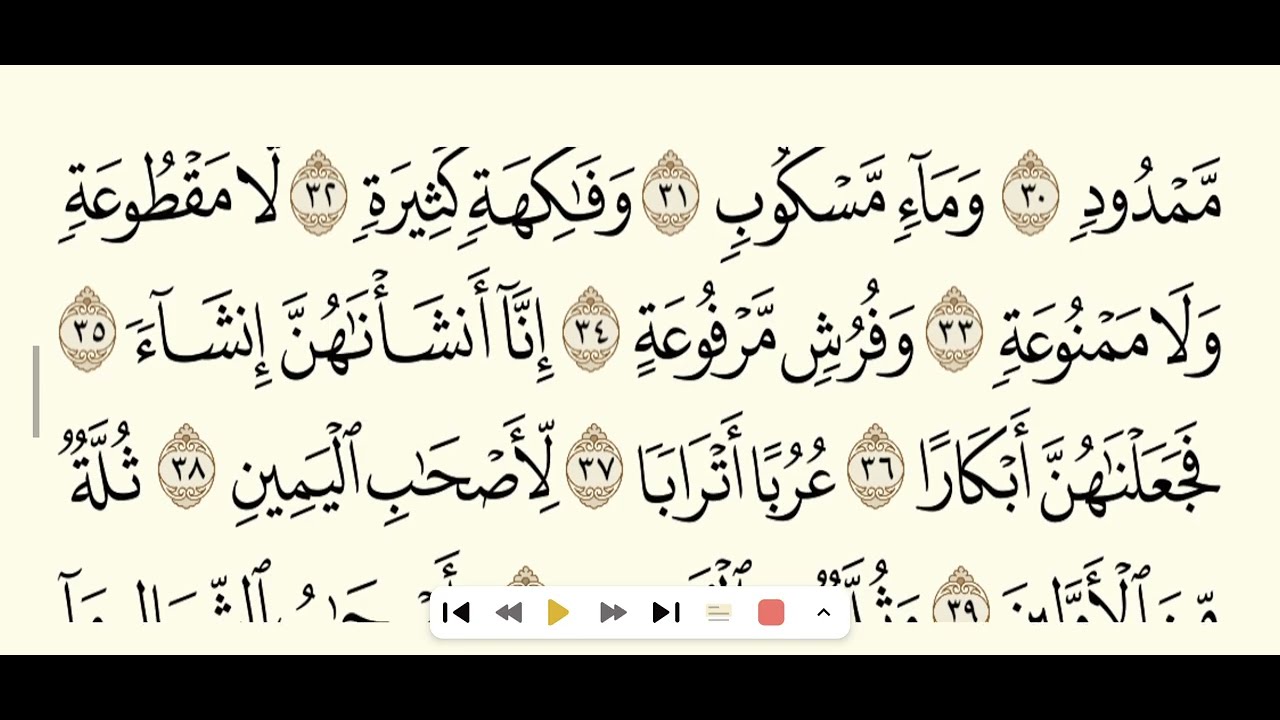 مَّمْدُودٍ ٣٠ وَمَآءٍ مَّسْكُوبٍ ٣١ وَفَٰكِهَةٍ كَثِيرَةٍ ٣٢ لَّا مَقْطُوعَةٍ
وَلَا مَمْنُوعَةٍ ٣٣ وَفُرُشٍ مَّرْفُوعَةٍ ٣٤ إِنَّآ أَنشَأْنَٰهُنَّ إِنشَآءً ٣٥
فَجَعَلْنَٰهُنَّ أَبْكَارًا ٣٦ عُرُبًا أَتْرَابًا ٣٧ لِّأَصْحَٰبِ ٱلْيَمِينِ ٣٨ ثُلَّةٌ
مِّنَ ٱلْأَوَّلِينَ ٣٩ وَثُلَّةٌ